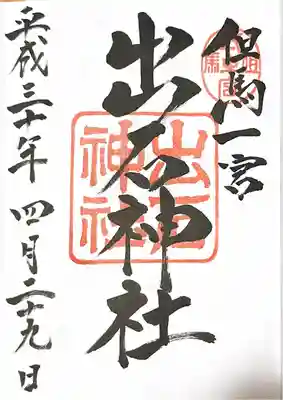 但馬一宮
出石神社
出石
神社
平成三十年 四月二十九日